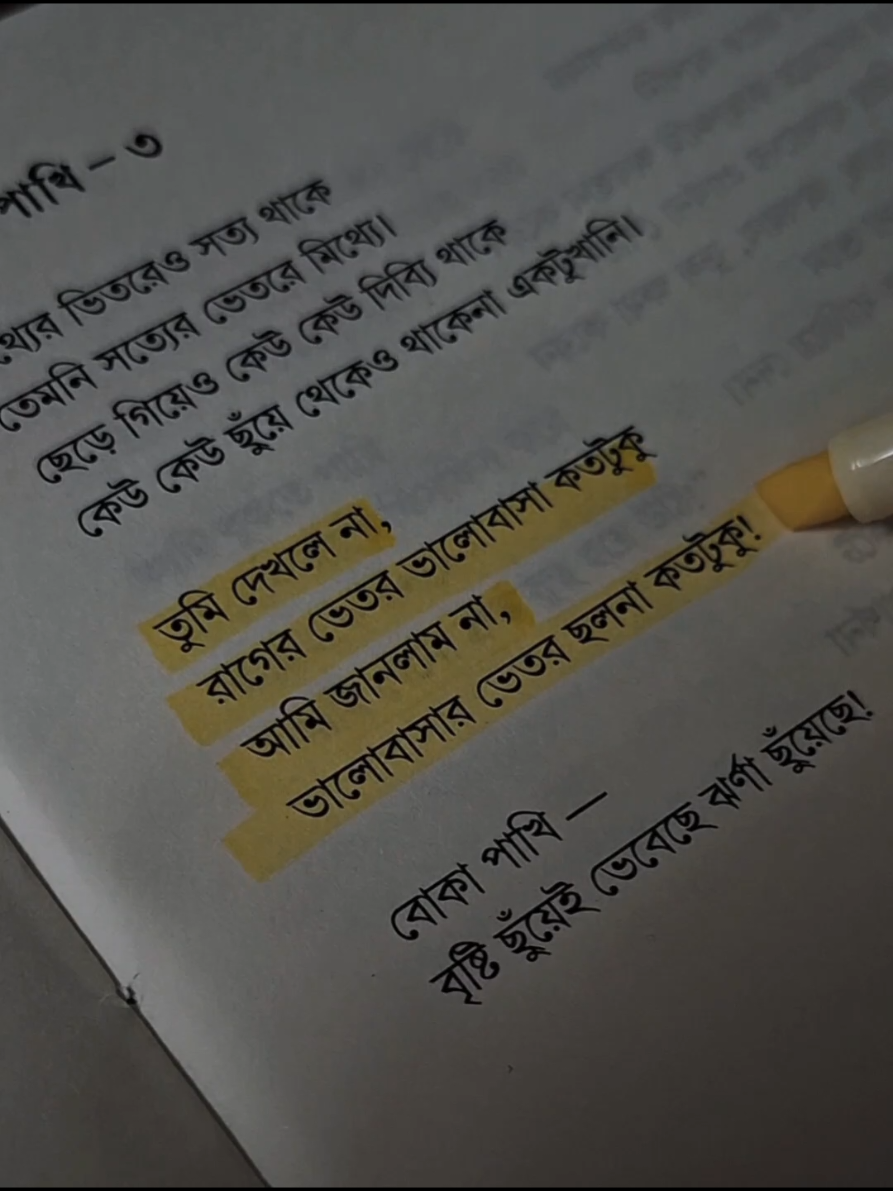 পাখি – ৩
ভিতরেও সত্য থাকে
তেমনি সত্যের ভেতরে মিথ্যে।
ছেড়ে গিয়েও কেউ কেউ দিব্যি থাকে
কেউ কেউ ছুঁয়ে থেকেও থাকেনা একটুখানি।
তুমি দেখলে না,
রাগের ভেতর ভালোবাসা কতটুকু
আমি জানলাম না,
ভালোবাসার ভেতর ছলনা কতটুকু!
বোকা পাখি —
বৃষ্টি ছুঁয়েই ভেবেছে ঝর্ণা ছুঁয়েছে!